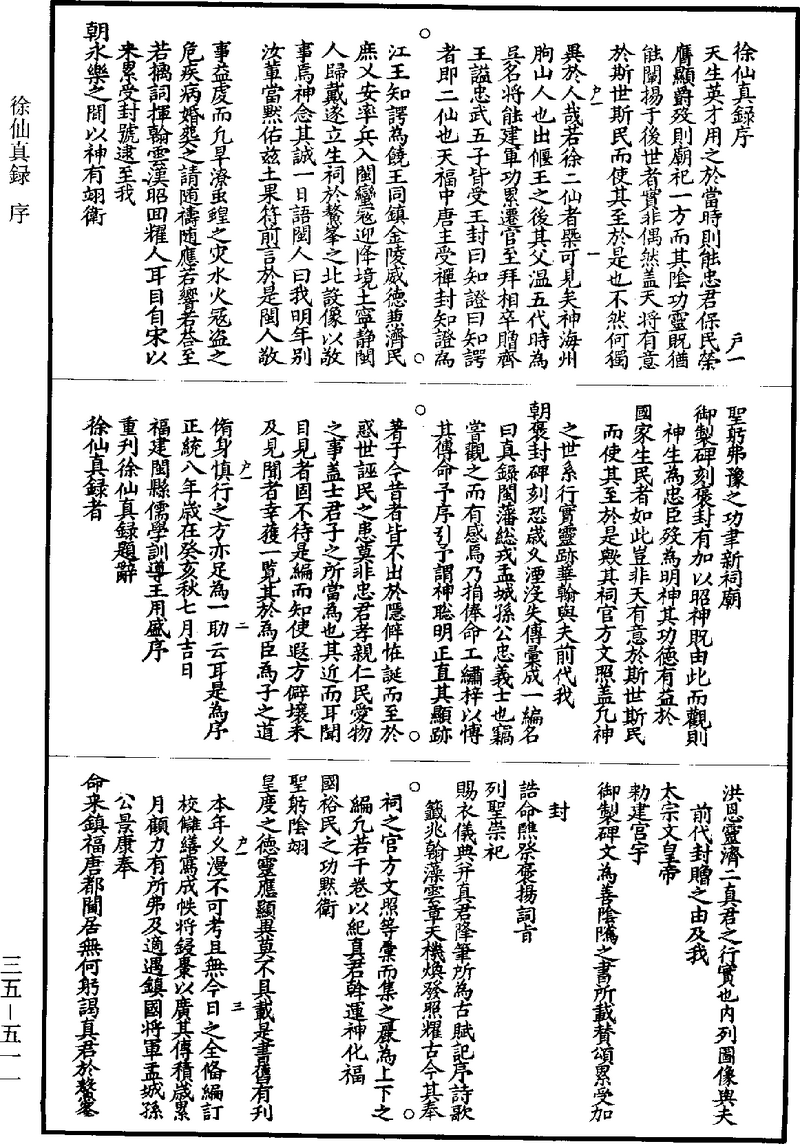 徐仙真録序
天生英才用之於當時則能忠君保民榮
膺顯爵歿則廟祀一方而其陰功靈貺猶
能闡揚于後世者實非偶然蓋天將有意
於斯世斯民而使其至於是也不然何獨
異於人哉若徐二仙者槩可見矣神海州
朐山人也出偃王之後其父溫五代時為
吳名將能建軍功累遷官至拜相卒贈齊
王謚忠武五子皆受王封曰知證曰知諤
者即二仙也天福中唐主受禪封知證為
江王知諤為饒王同鎮金陵威德兼濟民
庶乂安率兵入閩蠻寇迎降境土寧静閩
人歸戴遂立生祠於鰲峯之北設像以敬
事焉神念其誠一日語閩人曰我明年别
汝輩當默佑兹土果符前言於是閩人敬
事益虔而凡旱潦虫蝗之灾水火寇盜之
危疾病婚葬之請随禱随應若響若荅至
若禱詞揮翰雲漢昭回耀人耳目自宋以
来累受封號逮至我
朝永樂之間以神有翊衛
聖躬弗豫之功聿新祠廟
御製碑刻褒封有加以昭神貺由此而觀則
神生為忠臣歿為明神其功德有益於
國家生民者如此豈非天有意於斯世斯民
而使其至於是歟其祠官方文照蓋凡神
之世系行實靈跡華翰與夫前代我
朝褒封碑刻恐歲久湮没失傳彙成一編名
曰真録閩藩総戎孟城孫公忠義士也竊
嘗觀之而有感焉乃捐俸命工繡梓以博
其傳命予序引予謂神聰明正直其顯跡
著于今昔者皆不出於隱僻恠誕而至於
惑世誣民之患莫非忠君孝親仁民愛物
之事蓋士君子之所當為也其近而耳聞
目見者固不待是編而知使遐方僻壤未
及見聞者幸獲一覧其於為臣為子之道
脩身慎行之方亦足為一助云耳是為序
正統八年歲在癸亥秋七月吉日
福建閩縣儒學訓導王用盛序
重刋徐仙真録題辭
徐仙真録者
洪恩靈濟二真君之行實也内列圖像與夫
前代封贈之由及我
太宗文皇帝
勑建宫宇
御製碑文為善陰隲之書所載賛頌累受加
封
誥命醮祭褒揚詞旨
列聖崇祀
賜衣儀典并真君降筆所為古賦記序詩歌
籤兆翰藻雲章天機煥發照耀古今其奉
祠之官方文照等彙而集之釐為上下之
編凡若干卷以紀真君斡運神化福
國裕民之功默衛
聖躬陰翊
皇度之德靈應顯異莫不具載是書舊有刋
本年乂漫不可考且無今日之全脩編訂
校讎繕寫成帙将鋟棗以廣其傳積歲累
月顧力有所弗及適遇鎮國將軍孟城孫
公景康奉
命来鎮福唐都閫居無何躬謁真君於鰲峯
徐仙真録 序
三五—五一一